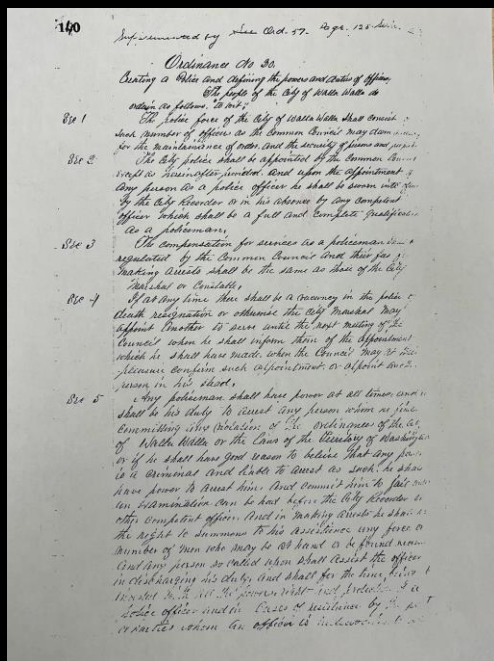 140
by See Ord. 57. Page 125
Ordinance No 20.
Creating a Police and defining the powers and duties of officers,
The people of the City of Walla Walla do
ordain as follows, to wit;
Sec 1 The police force of the City of Walla Walla shall consist of
such number of officers as the Common Council may
for the maintainance of order and the security of persons and
Sec 2 The City police shall be appointed by the Common
except as hereinafter provided. And upon the appointment of
any person as a police officer he shall be sworn into
by the City Recorder or in his absence by any competent
officer which shall be a full and complete
as a policeman.
Sec 3 The compensation for services as a policeman
regulated by the Common Council and their fees
making arrests shall be the same as those of the City
Marshal or Constable,
Sec 4 If at any time there shall be a vacancy in the police
death resignation or otherwise the City Marshal may
appoint another to serve until the next meeting of the
Council when he shall inform them of the appointment
which he shall have made. when the Council may at
pleasure confirm such appointment or appoint
person in his stead.
Sec 5 Any policeman shall have power at all times and
shall be his duty to arrest any person whom he
committing any violation of the ordinances of the
of Walla Walla or the Laws of the Territory of Washington
or if he shall have good reason to believe that any
is a criminal and liable to arrest as such. he shall
have power to arrest him and commit him to jail
an examination can be had before the City Recorder or
other competent officer. And in making arrests he shall
the right to summons to his assistance any force or
number of men who may be at hand or be found near
And any person so called upon shall assist the officer
in discharging his duty, and shall for the time being
police officer and in cases of resistance by the
whom an officer is